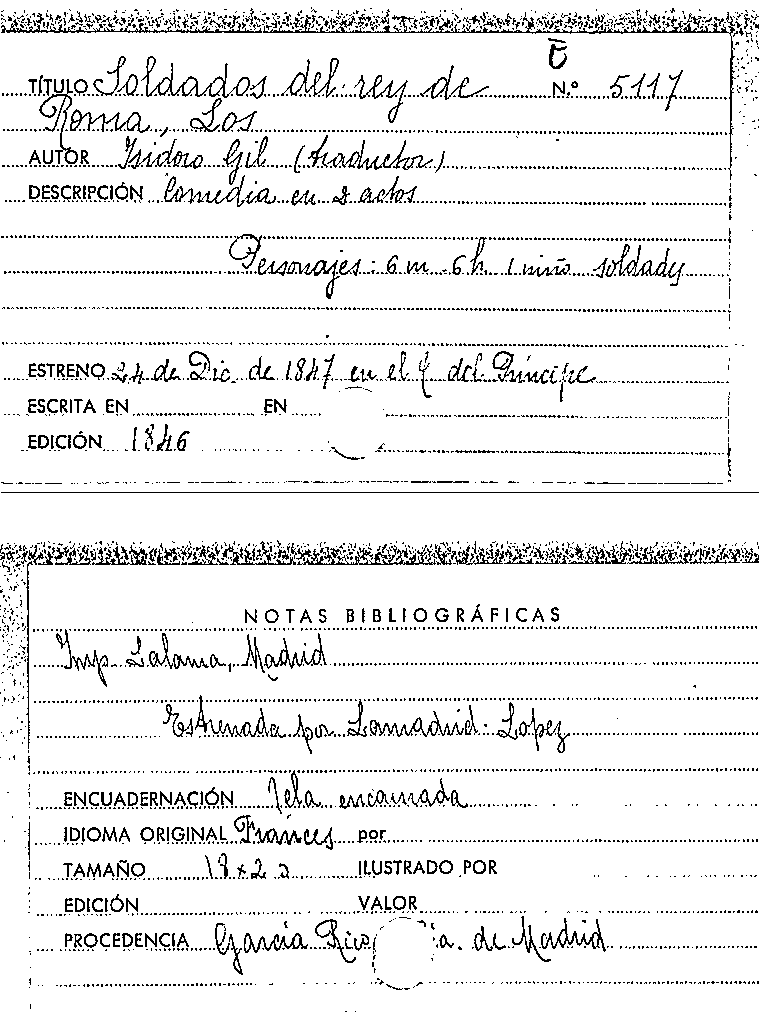 Ē
TÍTULO Soldados del rey de N.º 5117
Roma, Los
AUTOR Isidoro Gil (traductor)
DESCRIPCIÓN Comedia en 2 actos
Personajes: 6 m. 6 h. 1 niño soldados
ESTRENO 24 de Dic. de 1847 en el t. del Príncipe
ESCRITA EN EN
EDICIÓN 1846
NOTAS BIBLIOGRÁFICAS
Imp. Lalama, Madrid
Estrenada por Lamadrid - Lopez
ENCUADERNACIÓN Tela encarnada
IDIOMA ORIGINAL Francés por
TAMAÑO ILUSTRADO POR
EDICIÓN VALOR
PROCEDENCIA García Rico de Madrid